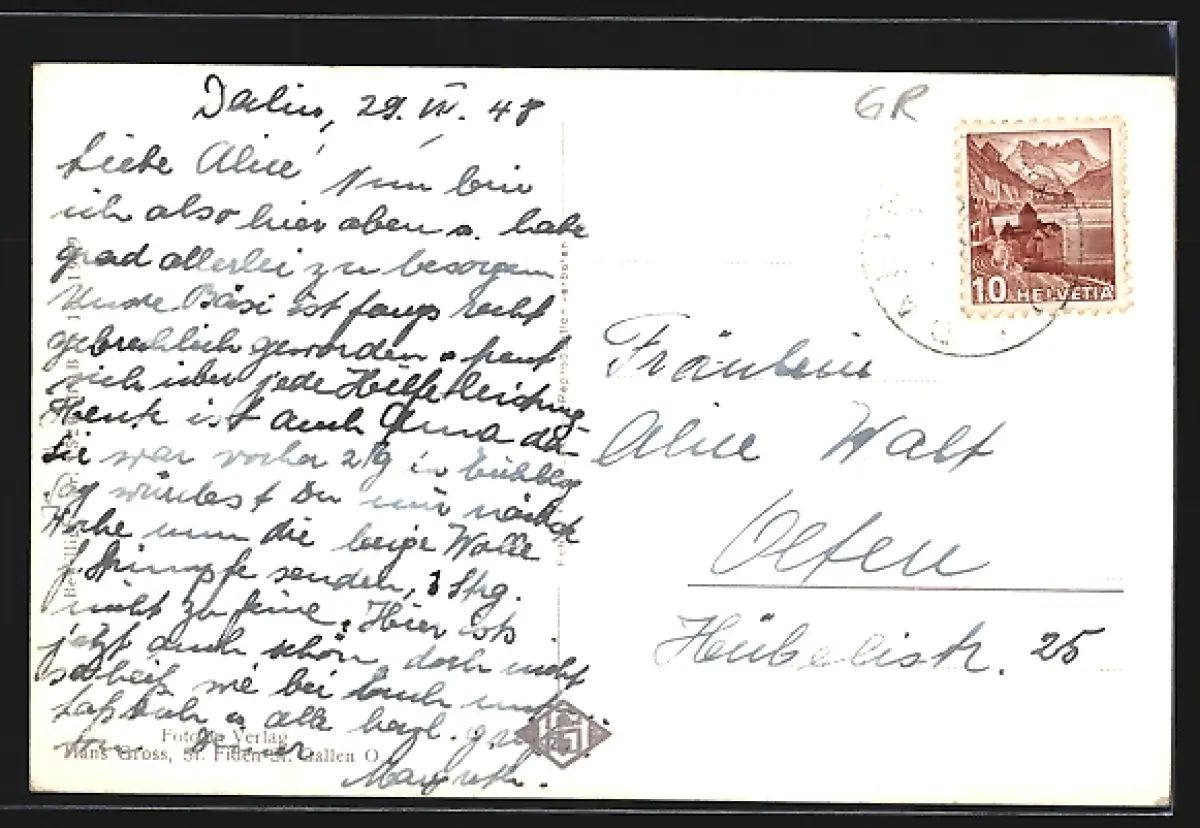 29. VII. 48
Liebe Alice! Nun bin
ich also hier oben u. habe
grad allerlei zu besorgen
Unsre Bäsi ist fangs recht
gebrechlich geworden u. freut
sich über jede Hülfeleistung.
Heute ist auch Anna da.
Sie war vorher 2 Tg in
würdest Du mir nächste
Woche nun die beige Wolle
f. Strümpfe senden, 3 Strg.
nicht zu feine. Hier ists
jetzt auch schön, doch nicht
so heiß wie bei Euch unten.
Laß Euch u. alle herzl.
Margreth.
Foto u. Verlag
Hans Gross, St. Fiden-St. Gallen O
GR
10 HELVETIA
Fräulein
Alice Walt
Olten
Hübelistr. 25